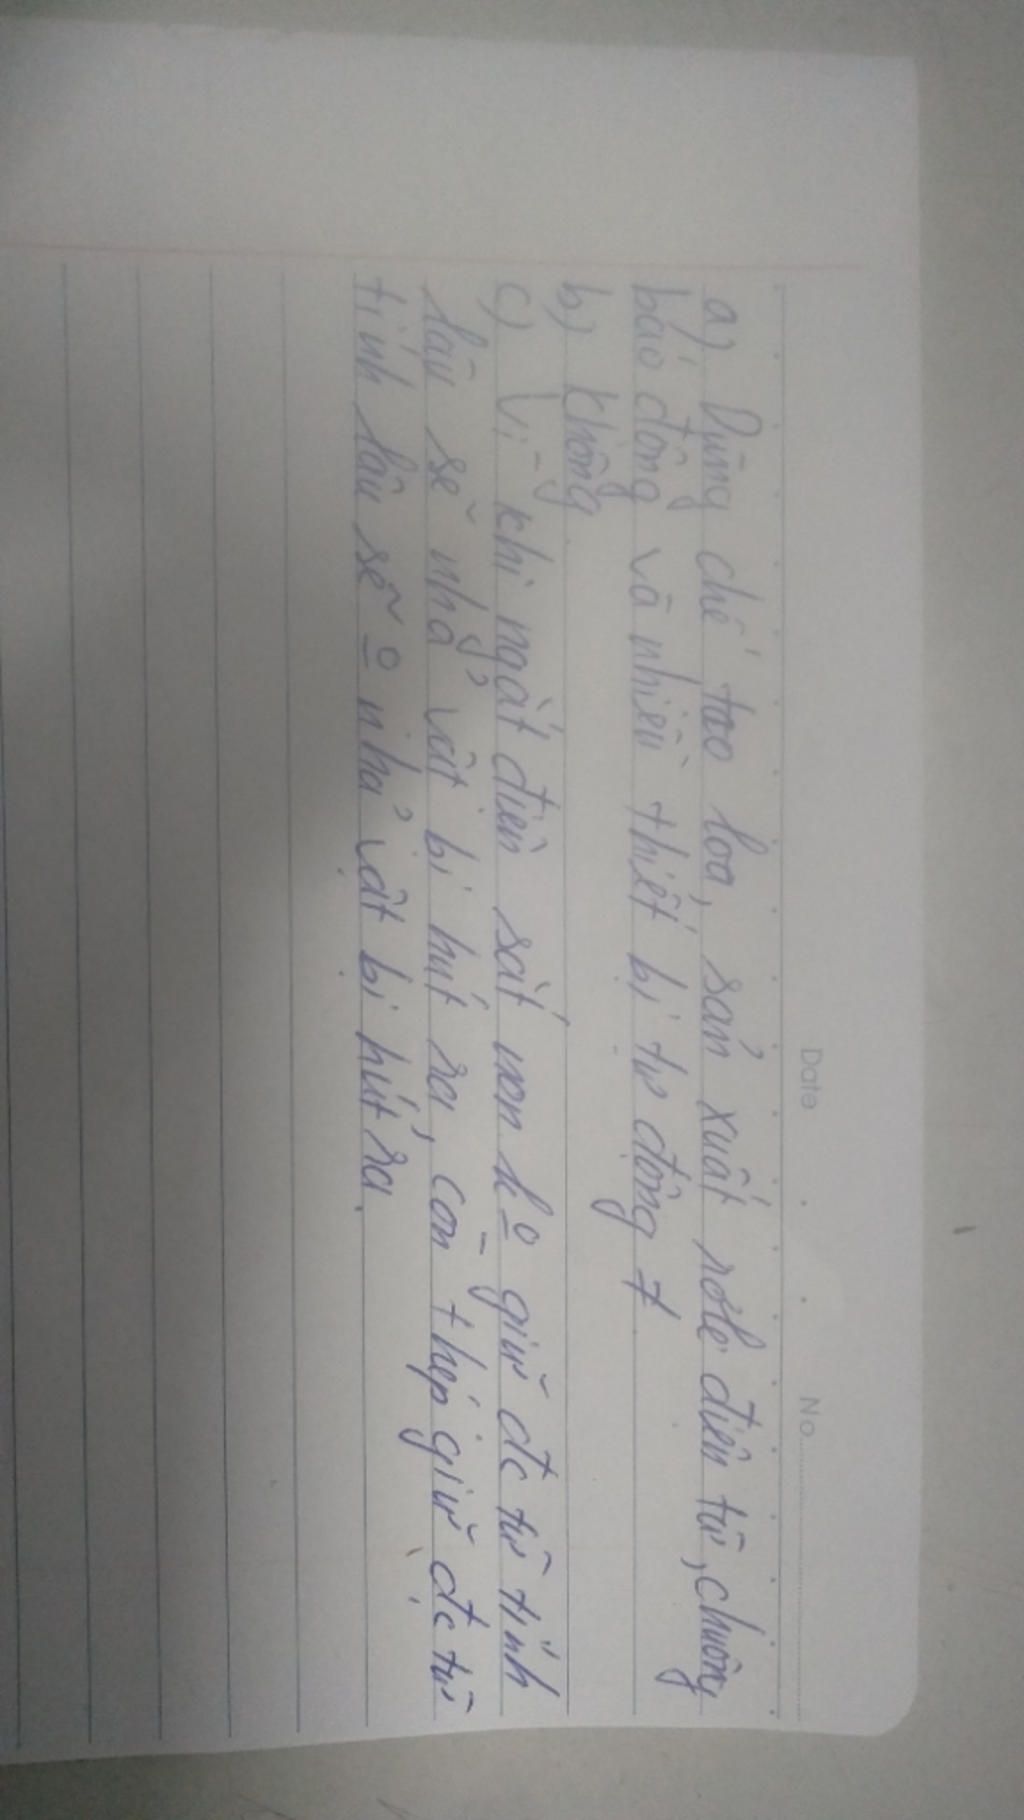 Date No.
a) Dùng chế tạo loa, sản xuất rơle điện từ, chuông
báo động và nhiều thiết bị tự động ≠
b) không
c) Vì khi ngắt điện sắt non kº giữ đc từ tính
lâu sẽ nhả vật bị hút ra, còn thép giữ đc từ
tính lâu sẽ º nhả vật bị hút ra.